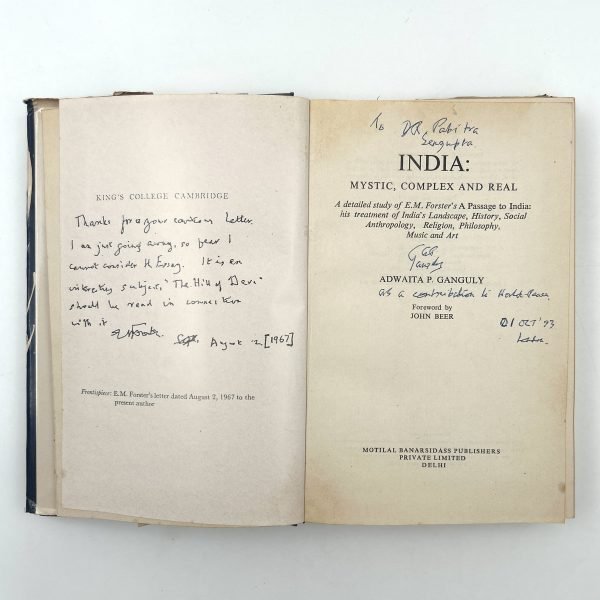 KING'S COLLEGE CAMBRIDGE
Thanks for your letter.
I am just going away, so fear I
cannot consider th Essay. It is an
interesting subject. "The Hill of Devi"
should be read in connection
with it
August 2 [1967]
Frontispiece: E.M. Forster's letter dated August 2, 1967 to the
present author
To DR. Pabitra
Sengupta
INDIA:
MYSTIC, COMPLEX AND REAL
A detailed study of E.M. Forster's A Passage to India:
his treatment of India's Landscape, History, Social
Anthropology, Religion, Philosophy,
Music and Art
Ganguly
ADWAITA P. GANGULY
as a contribution to
Foreword by
JOHN BEER
OCT '93
MOTILAL BANARSIDASS PUBLISHERS
PRIVATE LIMITED
DELHI